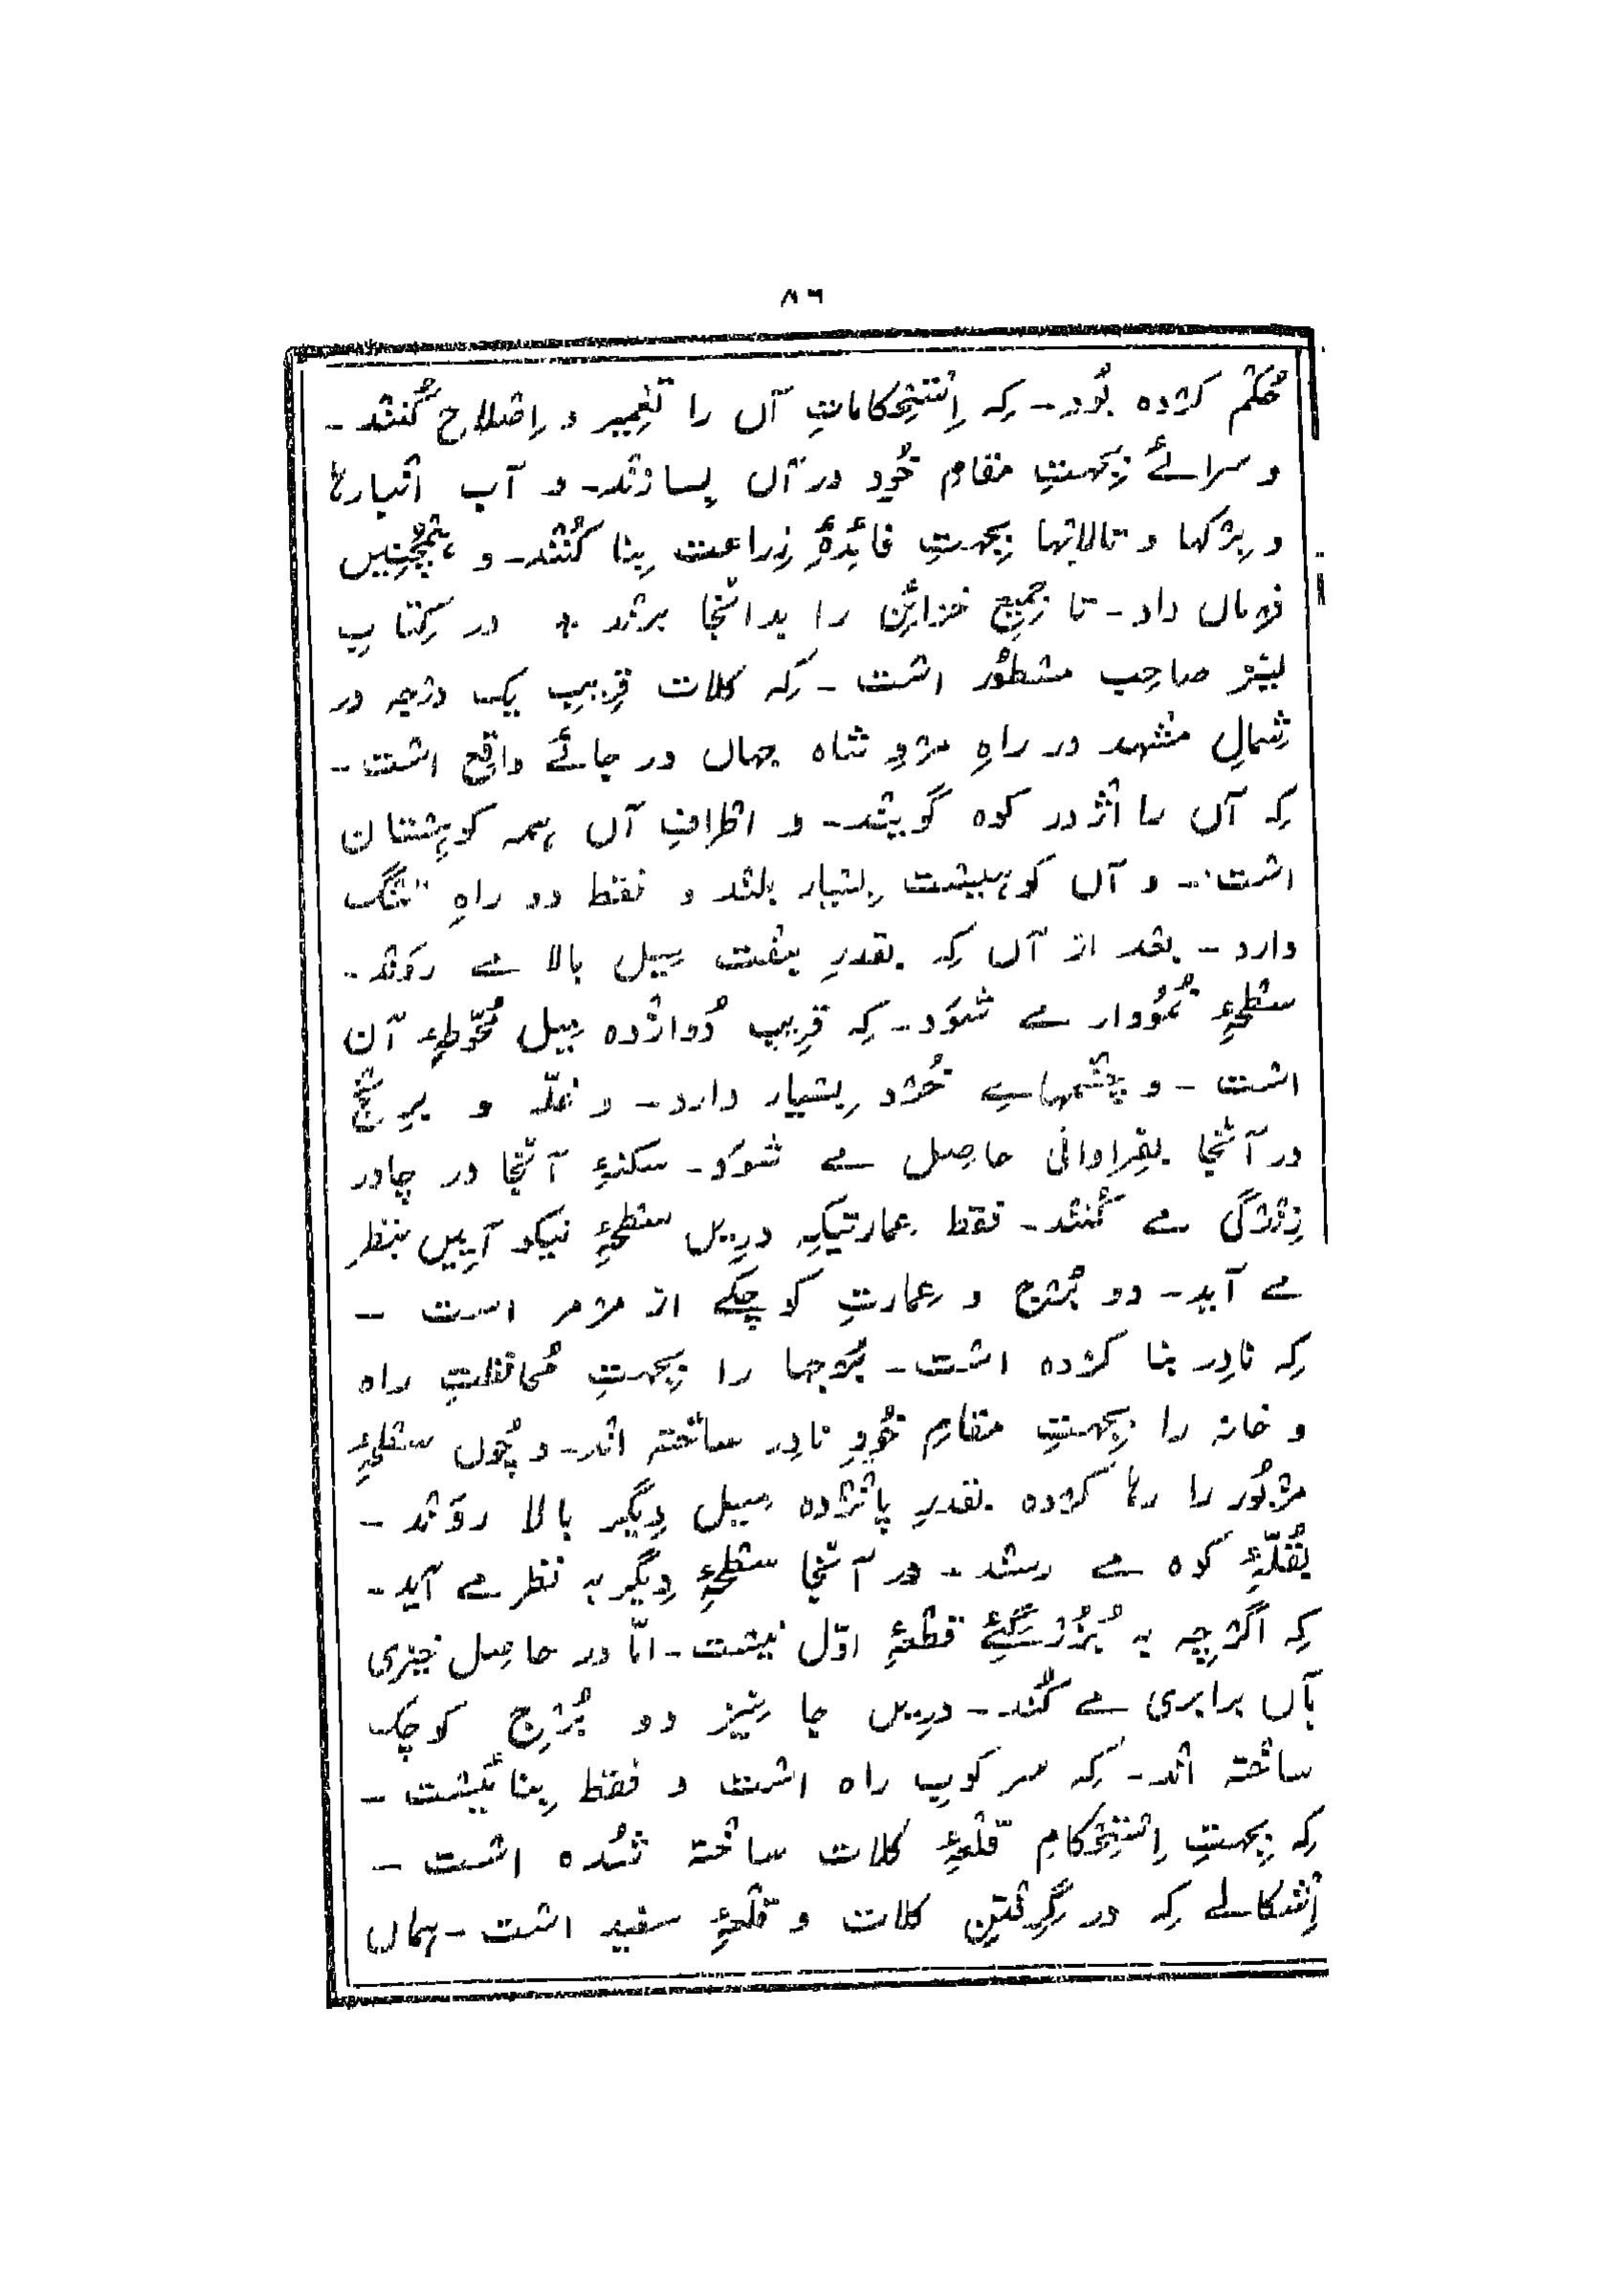 ۸۶
حُکم کرده بُود۔ کِہ اِستِحکاماتِ آں را تعمیر و اِصلاح کُنند۔
و سرائے بِجہتِ مقامِ خُود در آں بِسازند۔ و آب انبارہا
و بِرکہا و تالابہا بِجہتِ فائِدۂ زِراعت بِنا کُنند۔ و ہمچُنِیں
فرماں داد۔ تا جمِیع خزائِن را بدانجا برند ٭ در کِتابِ
لیتر صاحِب مسطُور است۔ کِہ کلات قرِیبِ یک درجہ در
شِمالِ مشہد در راہِ مروِ شاہ جہاں در جائے واقِع است۔
کِہ آں را اژدر کوہ گویند۔ و اطرافِ آں ہمہ کوہِستان
است۔ و آں کوہیست بِسیار بلند و فقط دو راہِ تنگ
دارد۔ بعد از آں کِہ بقدرِ ہفت مِیل بالا مے روَند۔
سطحۂ نمُودار مے شوَد۔ کِہ قرِیب دُوازده مِیل مُحوّطۂ آن
است۔ و چشمہاےِ خُرد بِسیار دارد۔ و غلّہ و بِرِنج
در آنجا بفِراوانی حاصِل مے شوَد۔ سکنۂ آنجا در چادر
زِندگی مے کُنند۔ فقط عِمارتیکِہ درِیں سطحۂ نیکو آیِیں بنظر
مے آید۔ دو بُرج و عِمارتِ کوچکے از مرمر است۔
کِہ نادِر بنا کرده است۔ بُرجہا را بِجہتِ مُحافظتِ راه
و خانہ را بِجہتِ مقامِ خُودِ نادِر ساختہ اند۔ و چُوں سطحۂ
مزبُور را رہا کرده بقدرِ پانزده مِیل دِیگر بالا روَند۔
بقُلّۂ کوه مے رسند۔ در آنجا سطحۂ دِیگر بہ نظر مے آید۔
کِہ اگرچِہ بہ بُزُرگیٔ قطعۂ اوّل نیست۔ امّا در حاصِل خیزی
بآں برابری مے کُند۔ درِیں جا نِیز دو بُرج کوچک
ساختہ اند۔ کِہ سرکوبِ راه است و فقط بِنائیست۔
کِہ بِجہتِ اِستِحکامِ قلعۂ کلات ساختہ شُده است۔
اِشکالے کِہ در گِرِفتنِ کلات و قلعۂ سفید است۔ ہماں